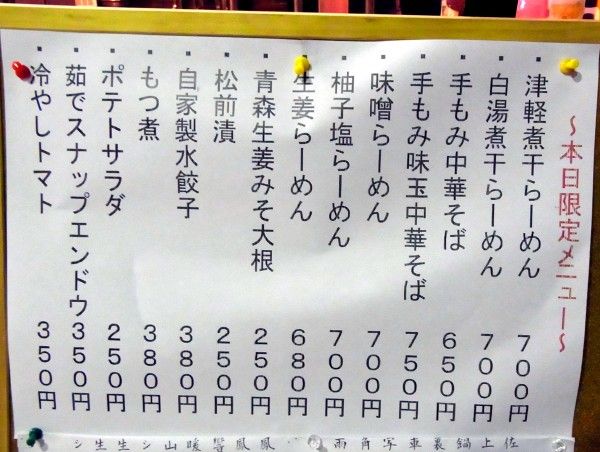 ～本日限定メニュー～
・津軽煮干らーめん 700円
・白湯煮干らーめん 700円
・手もみ中華そば 650円
・手もみ味玉中華そば 750円
・味噌らーめん 700円
・柚子塩らーめん 700円
・生姜らーめん 680円
・青森生姜みそ大根 250円
・松前漬 250円
・自家製水餃子 380円
・もつ煮 380円
・ポテトサラダ 250円
・茹でスナップエンドウ 350円
・冷やしトマト 350円